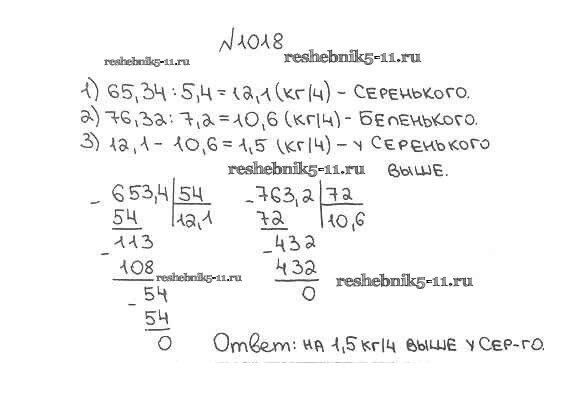 №1018
reshebnik5-11.ru reshebnik5-11.ru
1) 65,34 : 5,4 = 12,1 (кг/ч) - СЕРЕНЬКОГО.
2) 76,32 : 7,2 = 10,6 (кг/ч) - БЕЛЕНЬКОГО.
3) 12,1 - 10,6 = 1,5 (кг/ч) - У СЕРЕНЬКОГО
reshebnik5-11.ru ВЫШЕ.
- 653,4 | 54 - 763,2 | 72
54 12,1 72 10,6
- 113 - 432
108 reshebnik5-11.ru 432 reshebnik5-11.ru
- 54 0
54
0 Ответ: НА 1,5 кг/ч ВЫШЕ У СЕР-ГО.